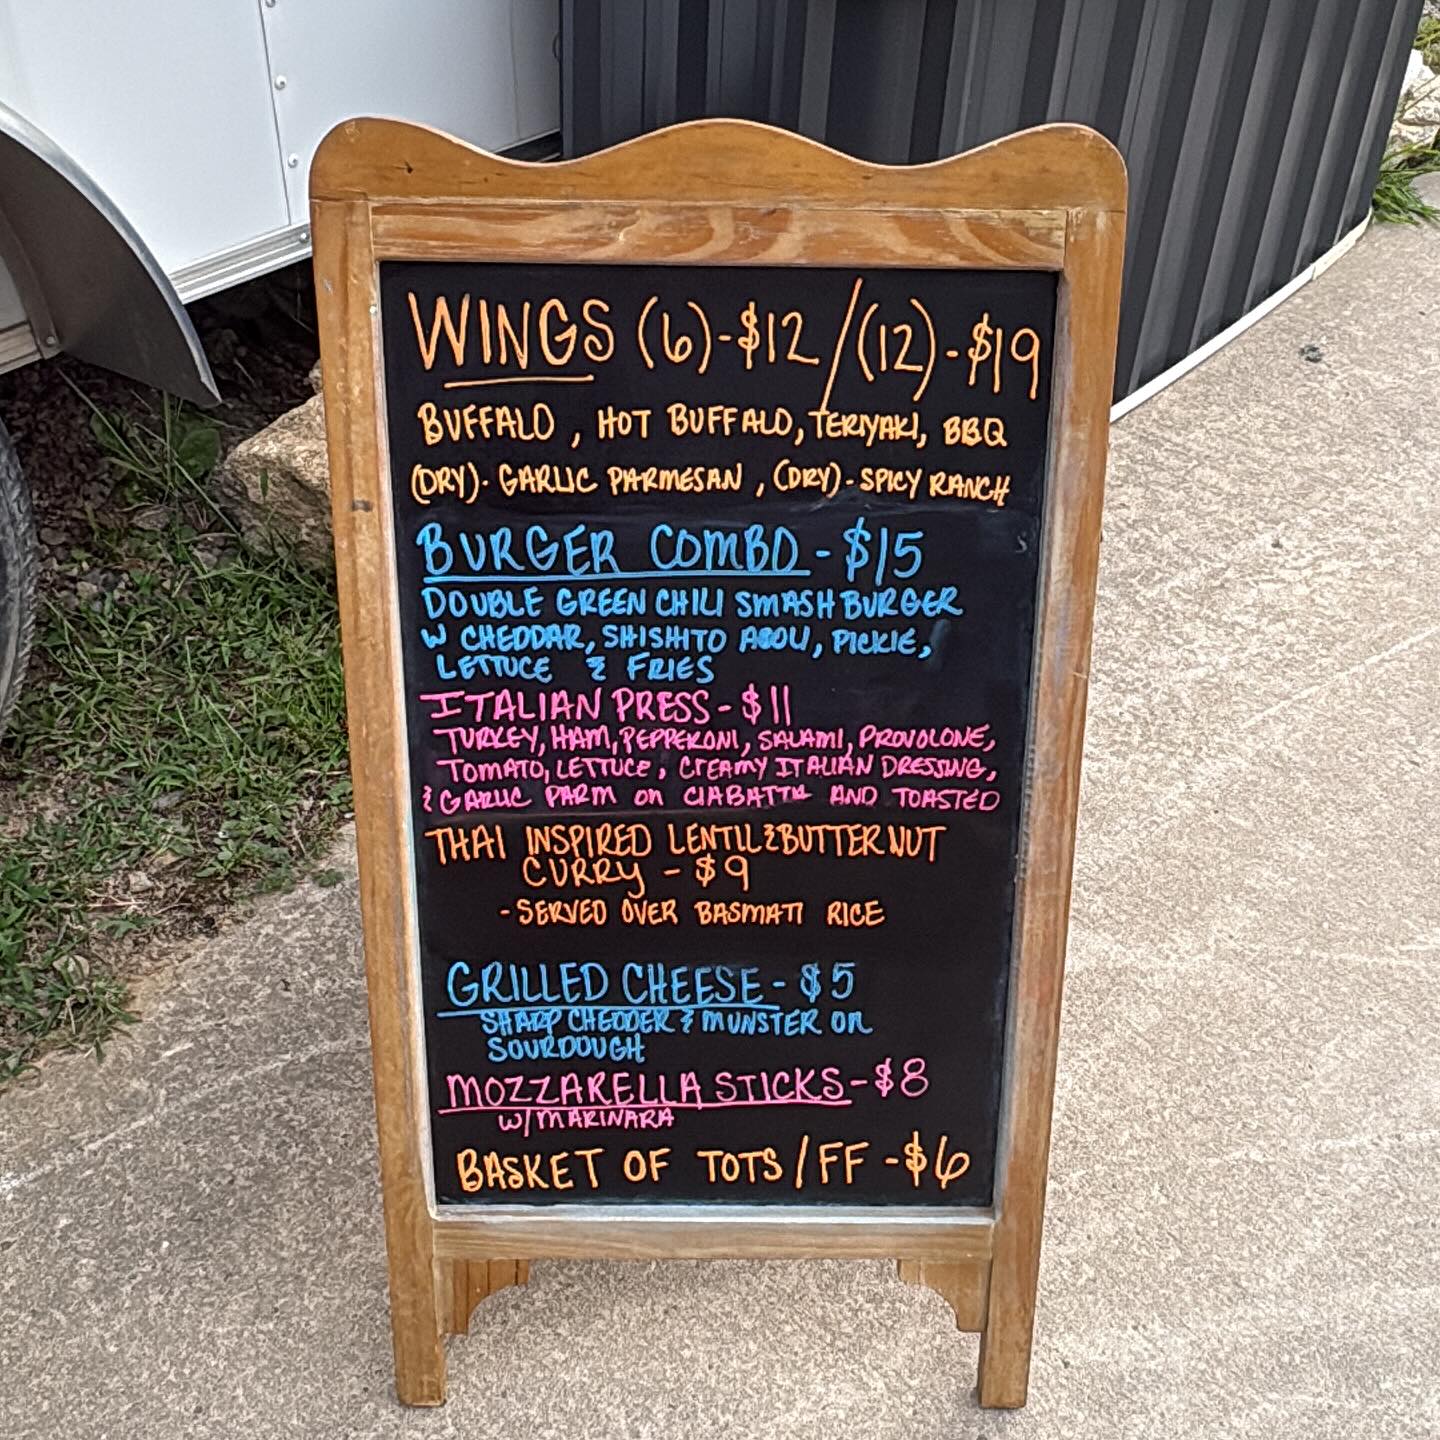 WINGS (6)-$12/(12)-$19
BUFFALO, HOT BUFFALO, TERIYAKI, BBQ
(DRY)- GARLIC PARMESAN, (DRY)- SPICY RANCH
BURGER COMBO - $15
DOUBLE GREEN CHILI SMASH BURGER
W CHEDDAR, SHISHITO AIOLI, PICKLE,
LETTUCE & FRIES
ITALIAN PRESS - $11
TURKEY, HAM, PEPPERONI, SALAMI, PROVOLONE,
TOMATO, LETTUCE, CREAMY ITALIAN DRESSING,
& GARLIC PARM ON CIABATTA AND TOASTED
THAI INSPIRED LENTIL & BUTTERNUT
CURRY - $9
- SERVED OVER BASMATI RICE
GRILLED CHEESE - $5
SHARP CHEDDER & MUNSTER ON
SOURDOUGH
MOZZARELLA STICKS - $8
W/MARINARA
BASKET OF TOTS/FF - $6